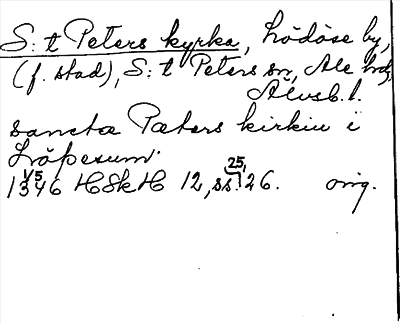 S:t Peters kyrka, Lödöse by,
(f. stad), S:t Peters sn, Ale hd,
Älvsb. l.
sancta Pæters kirkiu i
Löþesum.
1/5 25,
1346 HSkH 12, ss. 126. orig.